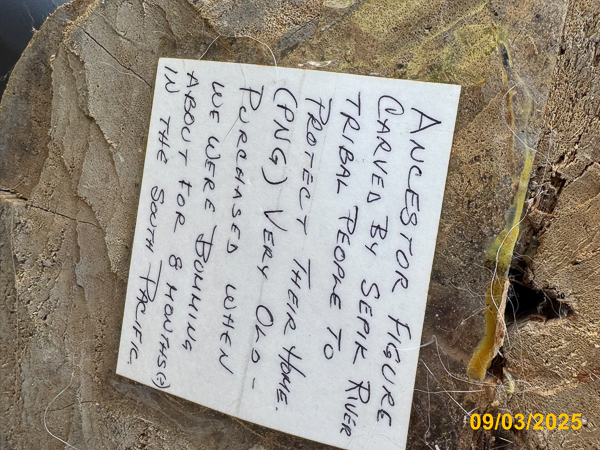 ANCESTOR FIGURE
CARVED BY SEPIK RIVER
TRIBAL PEOPLE TO
PROTECT THEIR HOME.
(PNG) VERY OLD -
PURCHASED WHEN
WE WERE BUMMING
ABOUT FOR 8 MONTHS(?)
IN THE SOUTH PACIFIC.
09/03/2025